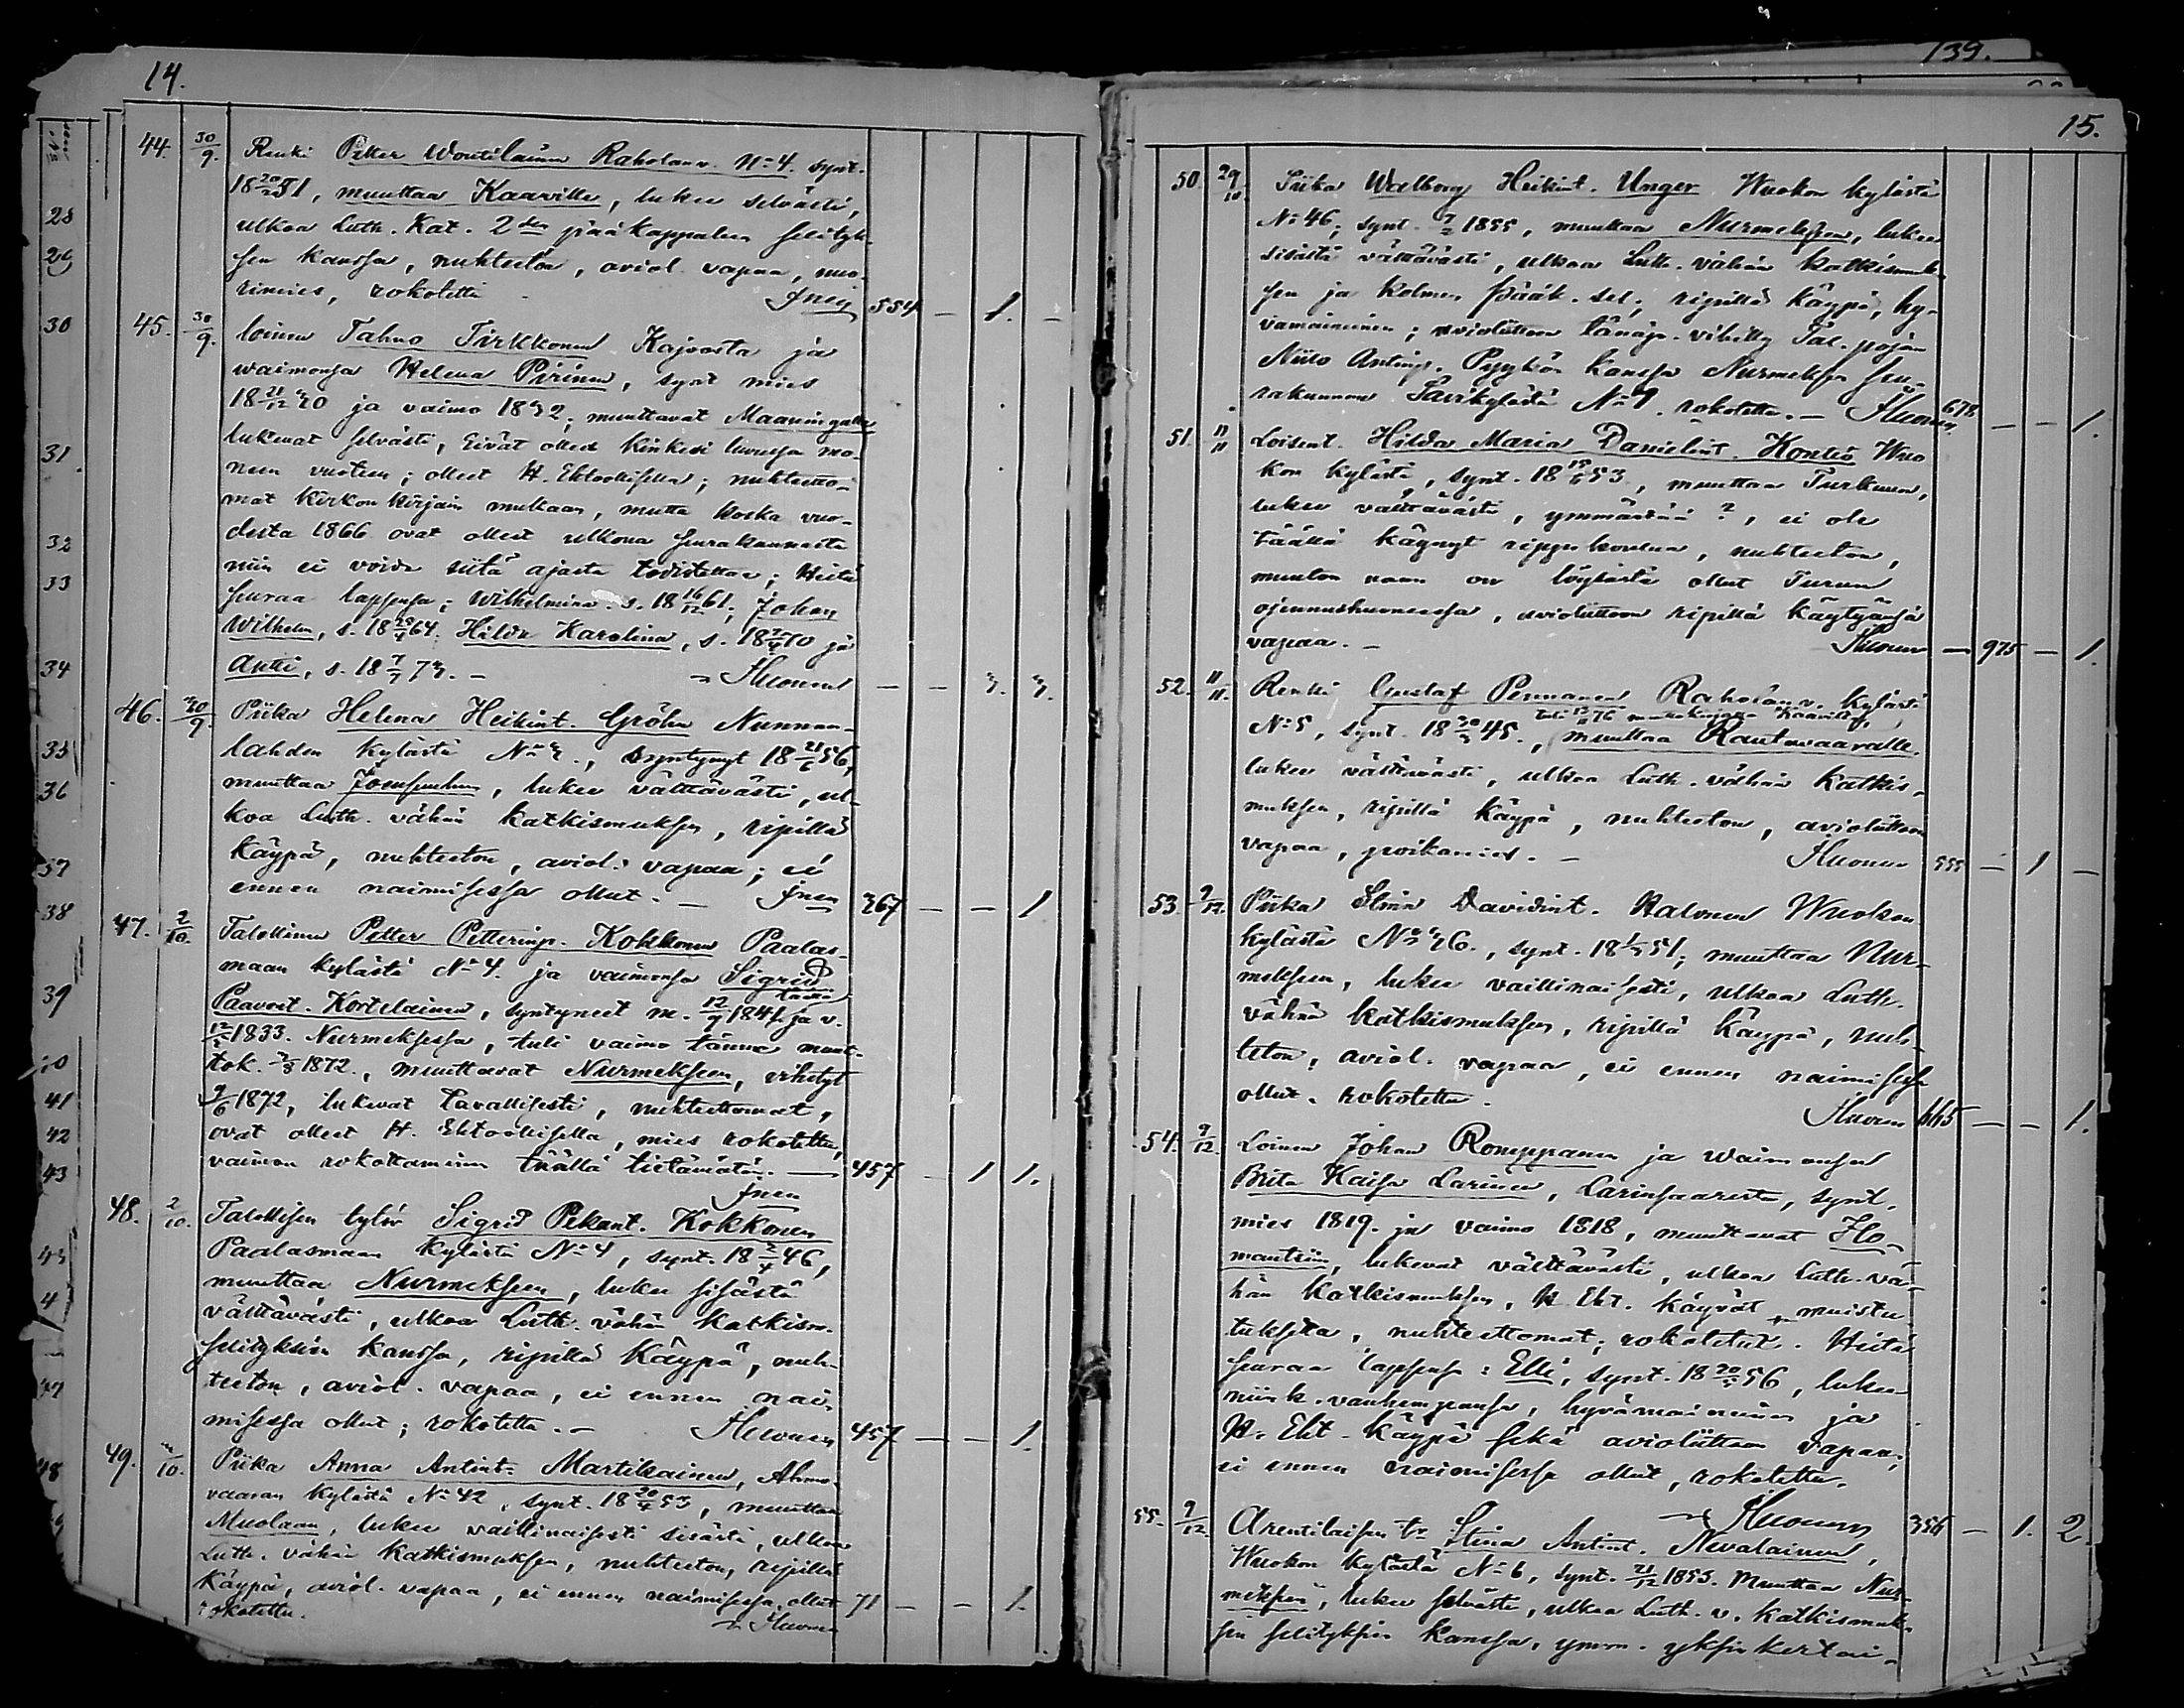 139.
14.
44. 30/9. Renki Petter Woutilainen Raholanv. No 4. synt.
18 20/20 51, muuttaa Kaaville, lukee selvästi,
ulkoa Luth. Kat. 2den pääkappaleen selityk-
sen kanssa, nuhteeton, aviol. vapaa, nuo-
rimies, rokotettu 554 — 1. —
45. 30/9. loinen Tahvo Tirkkonen Kajoosta ja
waimonsa Helena Pirinen, synt mies
18 21/12 20 ja vaimo 1832; muuttavat Maaningalle
lukevat selvästi, Eivät olleet Kinkeri luvussa mo-
neen vuoteen; olleet H. Ehtoollisella; nuhteetto-
mat kirkon kirjain mukaan, mutta koska vuo-
desta 1866 ovat olleet ulkona seurakunnasta
niin ei voida siitä ajasta todistettaa; Heitä
seuraa lapsensa; Wilhelmina s. 18 16/12 61; Johan
Wilhelm, s. 18 29/4 64. Hilda Karolina, s. 18 2/4 70 ja
Antti, s. 18 7/7 73. — — — 3. 3.
46. 30/9. Piika Helena Heikint. Gröhn Nunnan-
lahden kylästä No 3., syntynyt 18 21/6 56,
muuttaa Joensuuhun, lukee välttävästi, ul-
koa Luth. vähän katkismuksen, ripillä
käypä, nuhteeton, aviol. vapaa; ei
ennen naimisessa ollut. — 367 — — 1
47. 2/10. Talollinen Petter Petterinp. Kokkonen Paalas-
maan kylästä No 4. ja vaimonsa Sigrid
Paavont. Kortelainen, syntyneet m. 12/9 1841 ja v.
1833. Nurmeksessa, tuli vaimo tänne muut-
tok. 1872., muuttavat Nurmekseen, vihityt
9/6 1872, lukevat tavallisesti, nuhteettomat,
ovat olleet H. Ehtoollisella, mies rokotettu,
vaimon rokottaminen täällä tietämätön. — 457 — 1 1.
48. 2/10. Talollisen tytär Sigrid Pekant. Kokkonen
Paalasmaan kylästä No 4, synt. 18 2/4 46,
muuttaa Nurmekseen, lukee sisästä
välttävästi, ulkoa Luth. vähän katkism.
selityksien kanssa, ripillä käypä, nuh-
teeton, aviol. vapaa, ei ennen nai-
misessa ollut; rokotettu. — 457 — — 1.
49. 3/10. Piika Anna Antint. Martikainen, Ahmo-
vaaran kylästä No 42, synt. 18 20/4 53, muuttaa
Muolaan, lukee vaillinaisesti sisästä, ulkoa
Luth. vähän katkismuksen, nuhteeton, ripillä
käypä, aviol. vapaa, ei ennen naimisessa ollut 71 — — 1.
rokotettu.
15.
50 29/10 Piika Walborg Heikint. Unger Wuokon kylästä
No 46, synt. 7/2 1855, muuttaa Nurmekseen, lukee
sisältä välttävästi, ulkoa Luth. vähän katkismuk-
sen ja kolmen pääk. sel., ripillä käypä, hy-
vämaineinen; avioliittoon tänäp. vihitty Tal. pojan
Niilo Antinp. Pyykön kanssa Nurmeksen seu-
rakunnan Savikylästä No 7. rokotettu. — 678 — — 1.
51. 11/11 Loisent. Hilda Maria Danielint. Kontio Wuo-
kon kylästä, synt. 18 19/6 53, muuttaa Turkuun,
lukee välttävästi, ymmärtää ?, ei ole
täällä käynyt rippikoulua, nuhteeton,
muuton vaan on löytästä ollut Turun
ojennushuoneessa, avioliittoon ripillä käytyänsä
vapaa. — — 975 — 1.
52. 11/11. Renki Gustaf Pennanen Raholanv. kylästä
No 5, synt. 18 20/3 45., muuttaa Rautavaaralle.
lukee välttävästi, ulkoa Luth. vähän katkis-
muksen, ripillä käypä, nuhteeton, avioliittoon
vapaa, poikamies. — 555 — 1 —
53. 9/12. Piika Stina Davidint. Halonen Wuokon
kylästä No 26., synt. 18 1/3 51; muuttaa Nur-
mekseen, lukee vaillinaisesti, ulkoa Luth.
vähän katkismuksen, ripillä käypä, nuh-
teeton, aviol. vapaa, ei ennen naimisessa
ollut. rokotettu. 665 — — 1.
54. 9/12. Loinen Johan Romppanen ja waimonsa
Brita Kaisa Larinen, Larinsaaresta, synt.
mies 1819. ja vaimo 1818, muuttavat Ilo-
mantsiin, lukevat välttävästi, ulkoa Luth. vä-
hän katkismuksen, H. Eht. käyvät, muistu-
tuksetta, nuhteettomat; rokotetut. Heitä
seuraa lapsensa: Elli, synt. 18 20/5 56, lukee
niink. vanhempansa, hyvämaineinen ja
H. Eht. käypä sekä avioliittoon vapaa,
ei ennen naimisessa ollut, rokotettu.
356 — 1. 2
55. 9/12. Arentilaisen tr Stina Antint. Nevalainen,
Wuokon kylästä No 6, synt. 21/12 1853. Muuttaa Nur-
mekseen, lukee selvästi, ulkoa Luth. v. katkismuk-
sen selityksien kanssa, ymm. yksinkertai-